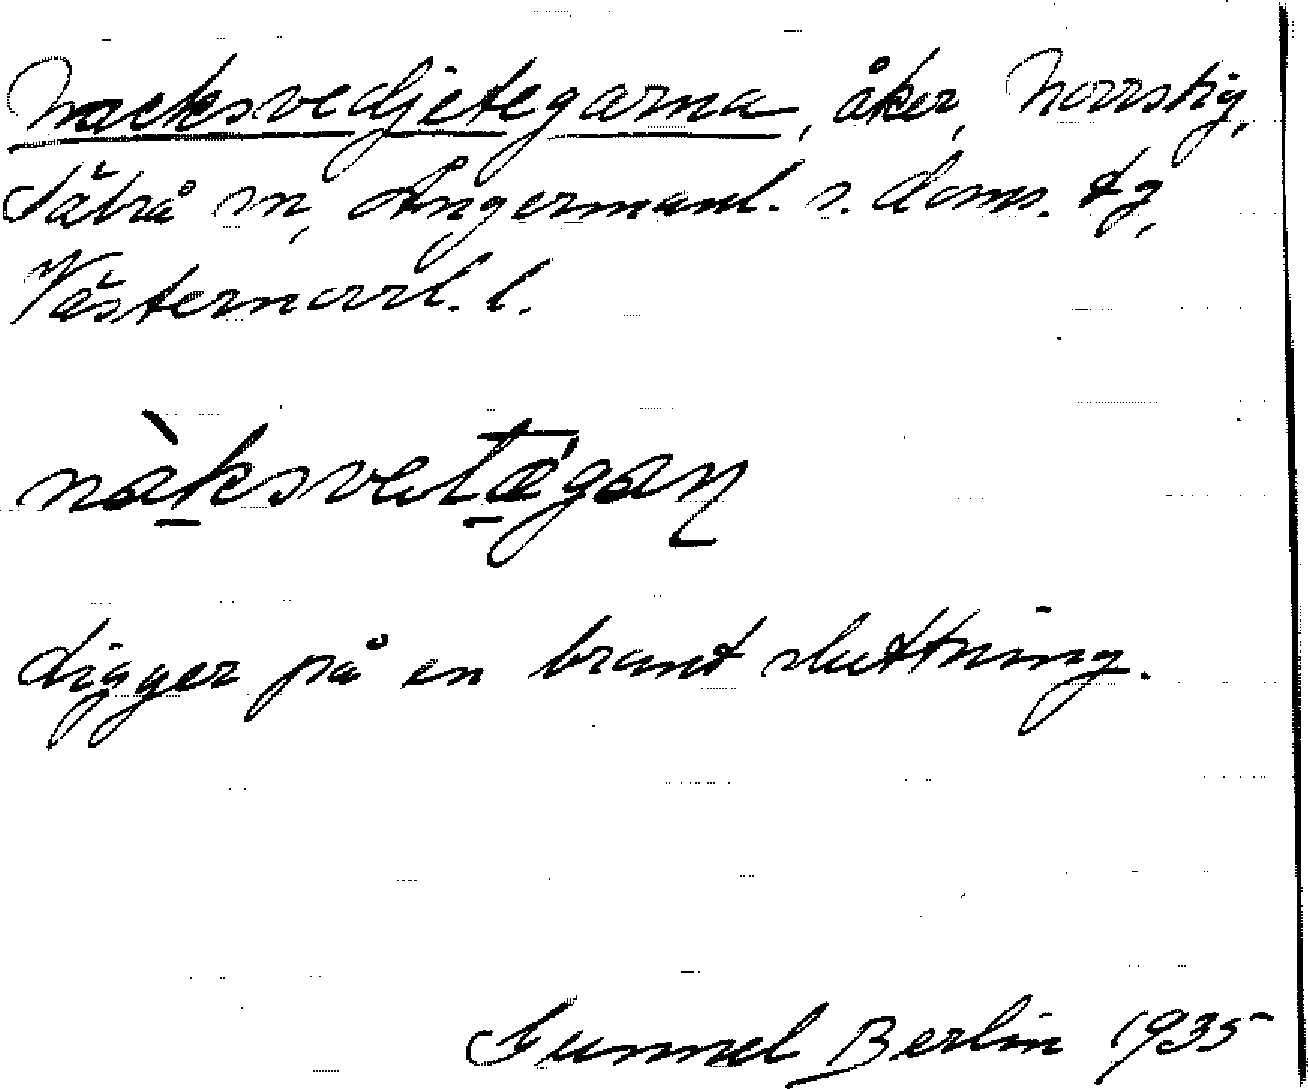 Nacksvedjetegarna, åker, Norrstig,
Säbrå sn, Ångermanl. s. doms. tg,
Västernorrl. l.
nàksvetægan
Ligger på en brant sluttning.
Gunnel Berlin 1935